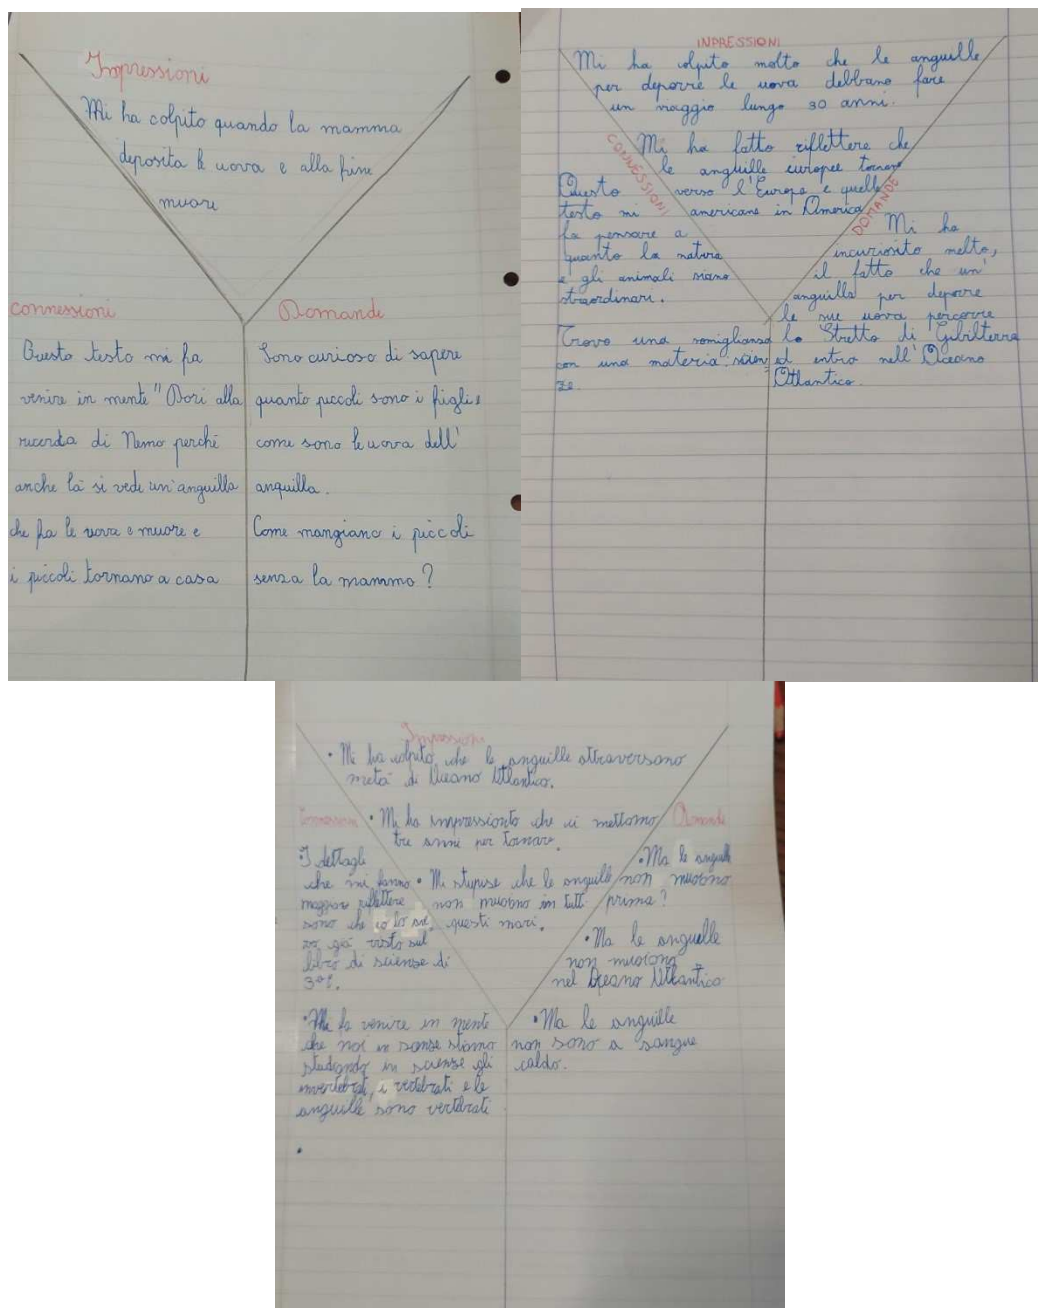 Impressioni
Mi ha colpito quando la mamma
deposita le uova e alla fine
muore
connessioni
Questo testo mi fa
venire in mente "Dori alla
ricerda di Nemo perché
anche là si vede un'anguilla
che fa le uova e muore e
i piccoli tornano a casa
Domande
Sono curioso di sapere
quanto piccoli sono i figli,
come sono le uova dell'
anguilla.
Come mangiano i piccoli
senza la mammo?
INPRESSIONI
Mi ha colpito molto che le anguille
per deporre le uova debbano fare
un viaggio lungo 30 anni.
Mi ha fatto riflettere che
le anguille europee tornano
verso l'Europa e quelle
americane in America
CONNESSIONI
Questo
testo mi
fa pensare a
quanto la natura
e gli animali siano
straordinari.
Trovo una somiglianza
con una materia: scien
ze.
DOMANDE
Mi ha
incuriosito molto,
il fatto che un'
anguilla per deporre
le sue uova percorre
lo Stretto di Gibilterra
ed entro nell'Oceano
Atlantico.
Impressioni
• Mi ha colpito che le anguille attraversano
metà di Oceano Atlantico.
• Mi ha impressionto che ci mettomo
tre anni per tornare.
• Mi stupise che le anguille
non muoiono in tutti
questi mari.
Connessioni
• I dettagli
che mi fanno
maggiore riflettere
sono che io lo
già visto sul
libro di sciense di
• Mi fa venire in mente
che noi in stiamo
studiando in sciense gli
invertebrati, i vertebrati e le
anguille sono vertebrati
•
Domande
• Ma le anguille
non muoiono
prima?
• Ma le anguelle
non muoiono
nel Oceano Atlantico
• Ma le anguille
non sono a sangue
caldo.